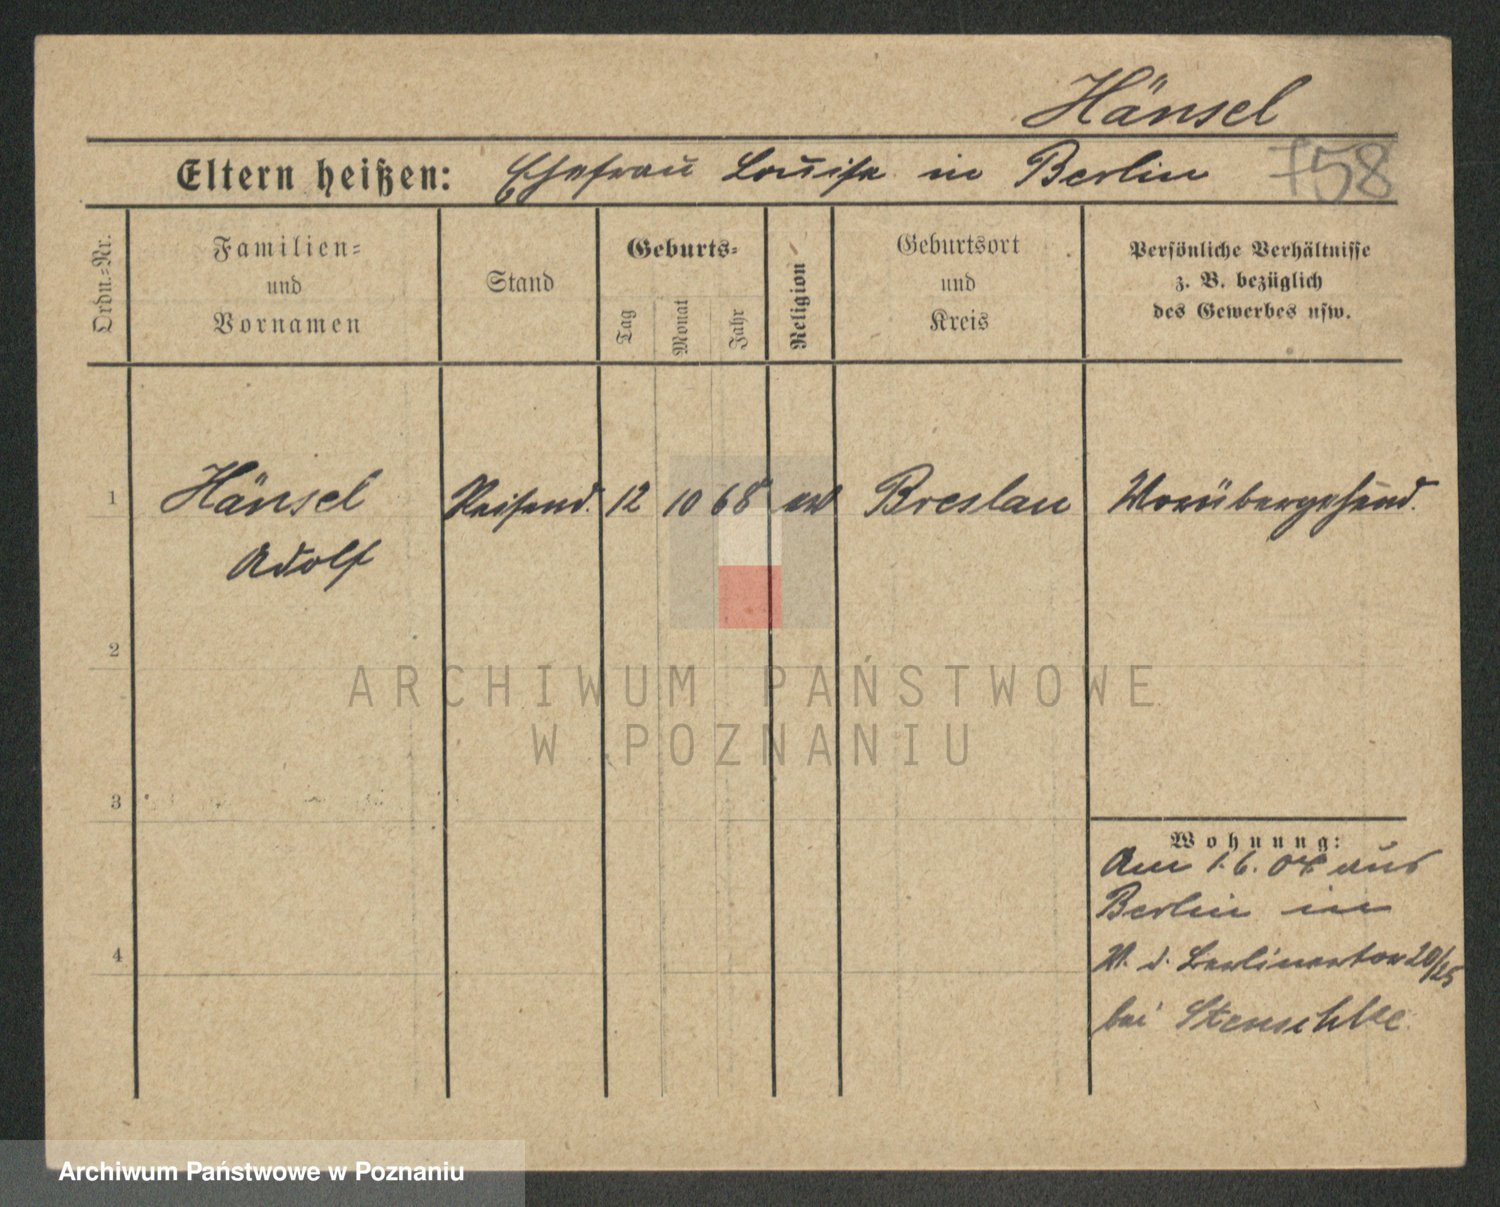 Hänsel
758
Eltern heißen: Ehefrau Louise in Berlin
Ordn.-Nr.
Familien-
und
Vornamen
Stand
Geburts-
Tag
Monat
Jahr
Religion
Geburtsort
und
Kreis
Persönliche Verhältnisse
z. B. bezüglich
des Gewerbes usw.
1
Hänsel
Adolf
Reisend.
12
10
68
ev
Breslau
Vorübergehend.
2
3
4
ARCHIWUM PAŃSTWOWE
W POZNANIU
Wohnung:
Am 1.6.04 aus
Berlin in
V. d. Berlinertor 20/25
bei
Archiwum Państwowe w Poznaniu